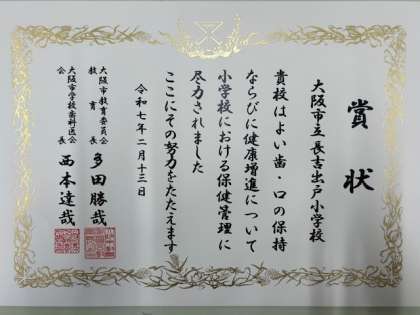 賞状
大阪市立長吉出戸小学校
貴校はよい歯・口の保持
ならびに健康増進について
小学校における保健管理に
尽力されました
ここにその努力をたたえます
令和七年二月十三日
大阪市教育委員会
教育長
多田勝哉
大阪市学校歯科医会
会長
西本達哉